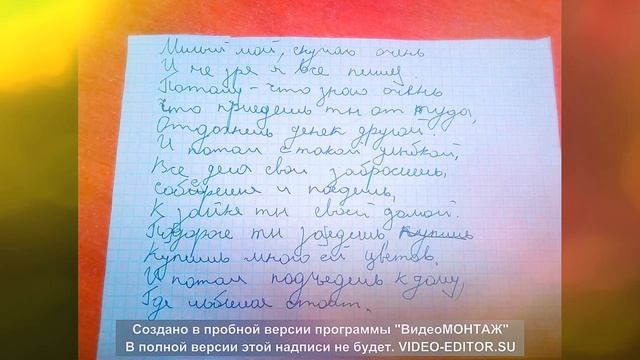 Милый мой, скучаю очень
И не зря я все пишу.
Потому-что знаю очень
Что приедешь ты от туда,
Отдохнешь денек другой.
И потом с такой улыбкой,
Все дела свои забросишь,
Соберешся и поедешь,
К зайке ты своей домой.
По дороге ты заедешь, купишь
Купишь много ей цветов,
И потом подъедешь к дому,
Где любимая стоит.
Создано в пробной версии программы "ВидеоМОНТАЖ"
В полной версии этой надписи не будет. VIDEO-EDITOR.SU